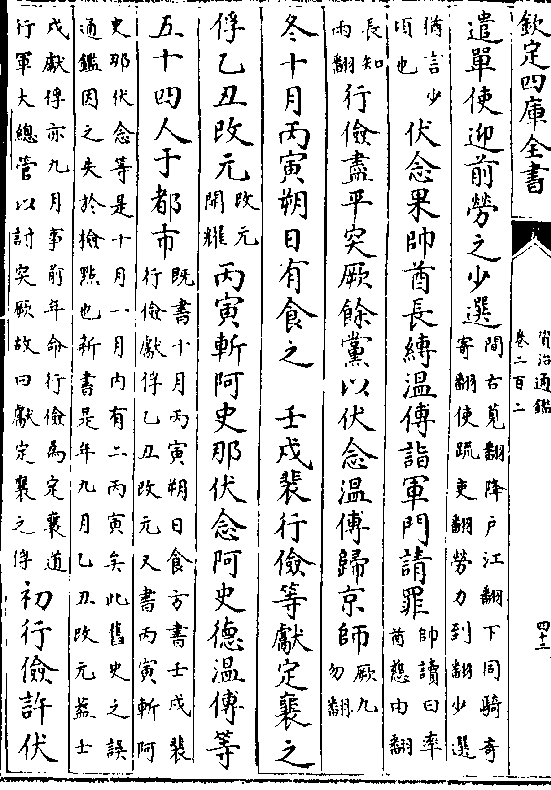 欽定四庫全書
資治通鑑
卷二百二
四十三
遣單使迎前勞之少選間古莧翻降户江翻下同騎奇
寄翻使疏吏翻勞力到翻少選
猶言少
頃也伏念果帥酋長縛温傅詣軍門請罪帥讀曰率
酋慈由翻
長知
兩翻行儉盡平突厥餘黨以伏念温傅歸京師厥九
勿翻
冬十月丙寅朔日有食之 壬戌裴行儉等獻定襄之
俘乙丑改元改元
開耀丙寅斬阿史那伏念阿史德温傅等
五十四人于都市既書十月丙寅朔日食方書壬戌裴
行儉獻俘乙丑改元又書丙寅斬阿
史那伏念等是十月一月内有二丙寅矣此舊史之誤
通鑑因之失於檢點也新書是年九月乙丑改元葢壬
戌獻俘亦九月事前年命行儉為定襄道
行軍大總管以討突厥故曰獻定襄之俘初行儉許伏